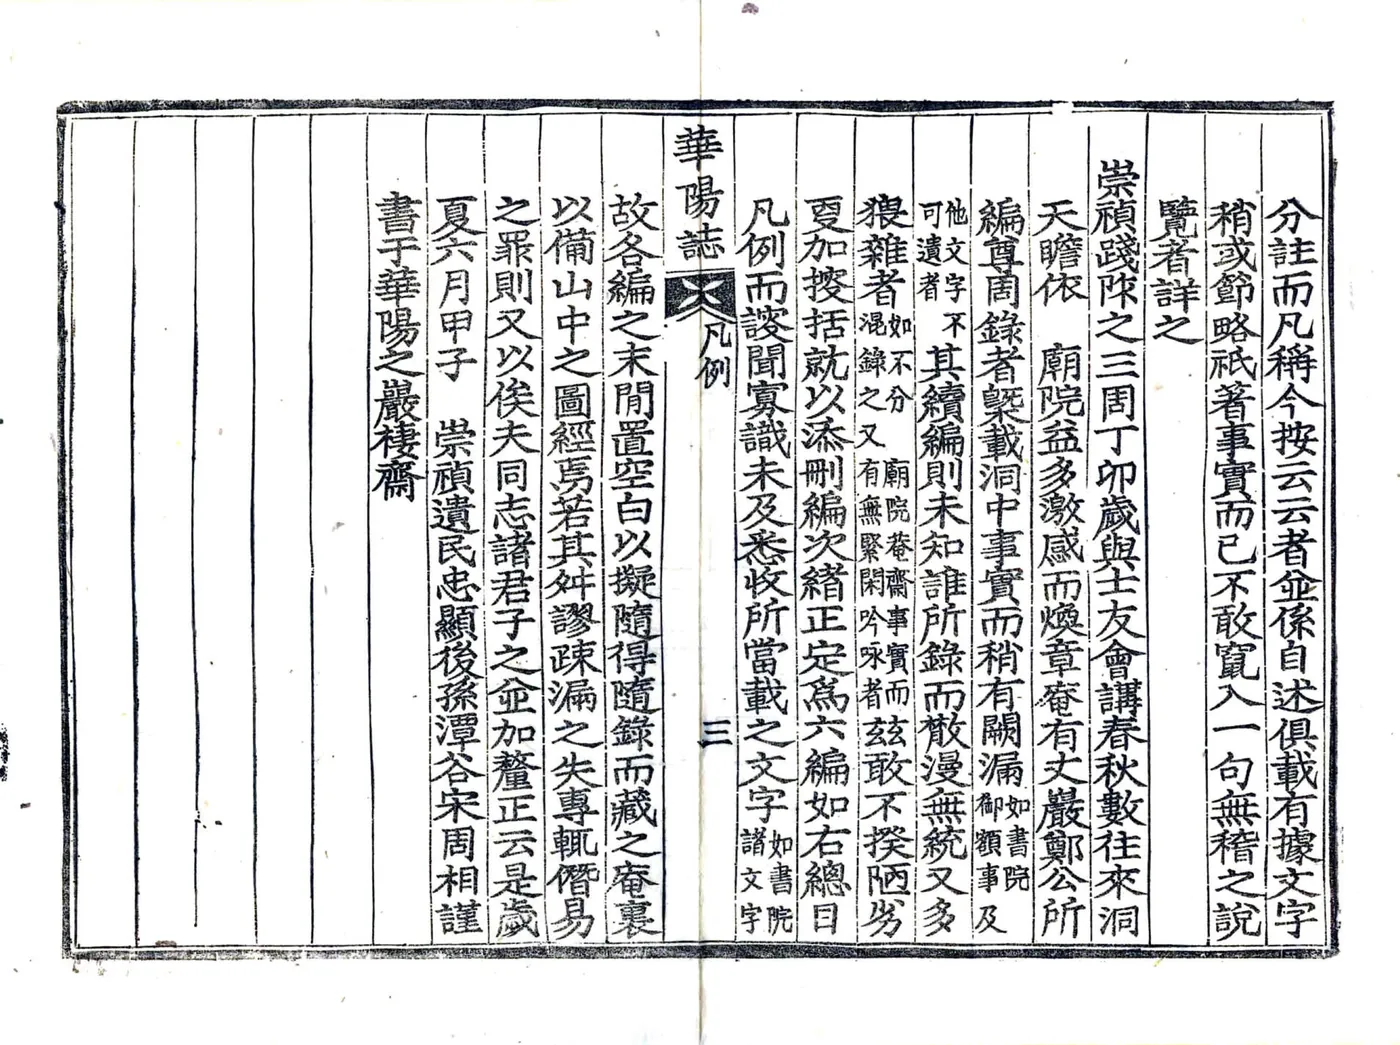 分註而凡稱今按云云者並係自述俱載有據文字
稍或節略祇著事實而已不敢竄入一句無稽之說
覽者詳之
崇禎踐阼之三周丁卯歲與士友會講春秋數往來洞
天瞻依 廟院益多激感而煥章庵有丈巖鄭公所
編尊周錄者槩載洞中事實而稍有闕漏如書院御額事及
他文字不可遺者其續編則未知誰所錄而散漫無統又多
猥雜者如不分 廟院菴齋事實而混錄之又有無緊閑吟咏者茲敢不揆陋劣
更加搜括就以添刪編次緖正定爲六編如右總目
凡例而謏聞寡識未及悉收所當載之文字如書院諸文字
華陽誌 凡例 三
故各編之末閒置空白以擬隨得隨錄而藏之庵裏
以備山中之圖經焉若其舛謬疎漏之失專輒僭易
之罪則又以俟夫同志諸君子之並加釐正云是歲
夏六月甲子 崇禎遺民忠顯後孫潭谷宋周相謹
書于華陽之巖棲齋